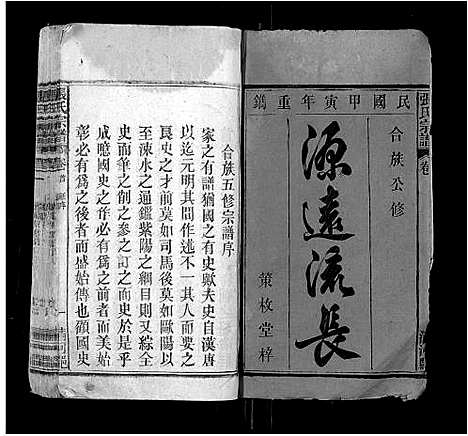 民國甲寅年重鐫
合族公修
源遠流長
策枚堂梓
張氏宗譜
卷
合族五修宗譜序
家之有譜猶國之有史歟夫史自漢唐
以迄元明其間作述不一其人而要之
良史之才前莫如司馬後莫如歐陽以
至涑水之通鑑紫陽之綱目則又綜全
史而筆之創之參之訂之而史於是乎
成噫國史之作必有爲之前者而美始
彰必有爲之後者而盛始傳也顧國史
張氏宗譜
卷首
一